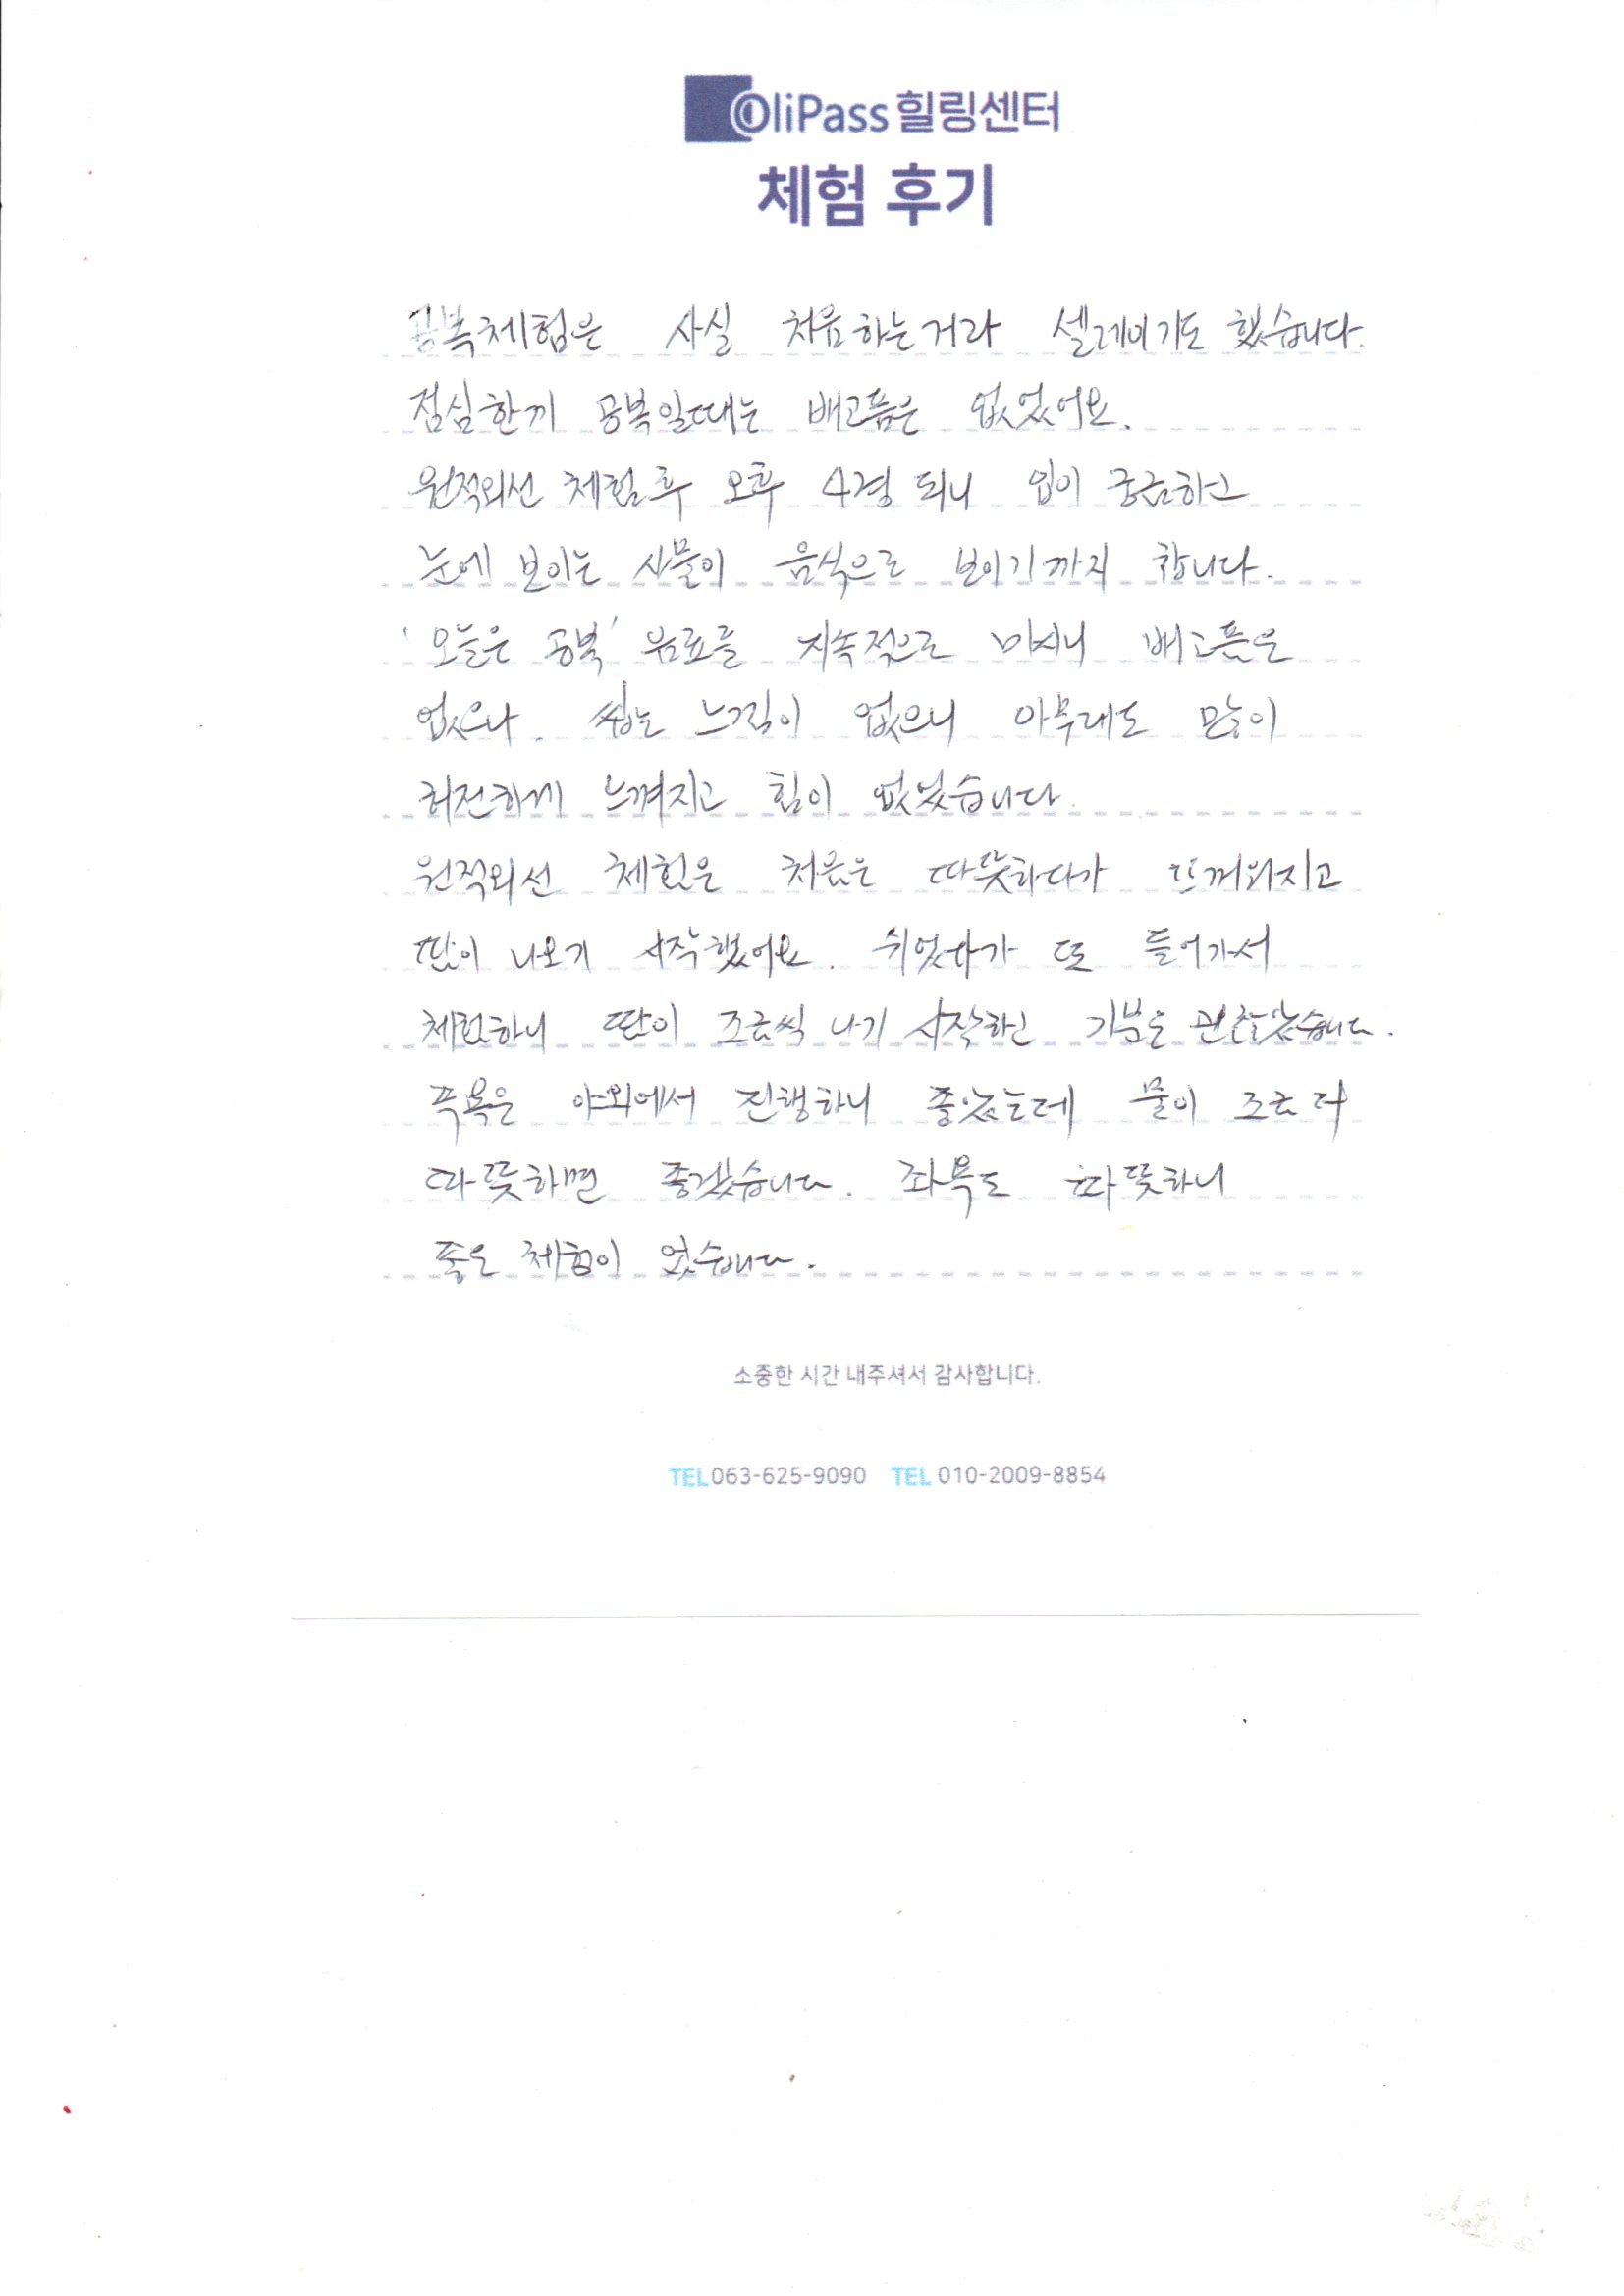 OliPass 힐링센터
체험 후기
공복체험은 사실 처음하는거라 셀레이기도 했습니다.
점심한끼 공복일때는 배고픔은 없었어요.
원적외선 체험후 오후 4경 되니 입이 궁금하고
눈에 보이는 사물이 음식으로 보이기까지 합니다.
'오늘은 공복' 음료를 지속적으로 마시니 배고픔은
없으나. 씹는 느낌이 없으니 아무래도 많이
허전하게 느껴지고 힘이 없었습니다.
원적외선 체험은 처음은 따뜻하다가 뜨꺼워지고
땀이 나오기 시작했어요. 쉬었다가 또 들어가서
체험하니 땀이 조금씩 나기 시작하고 기분은 괜찮았습니다.
족욕은 야외에서 진행하니 좋았는데 물이 조금 더
따뜻하면 좋겠습니다. 좌욕도 따뜻하니
좋은 체험이 었습니다.
소중한 시간 내주셔서 감사합니다.
TEL 063-625-9090 TEL 010-2009-8854